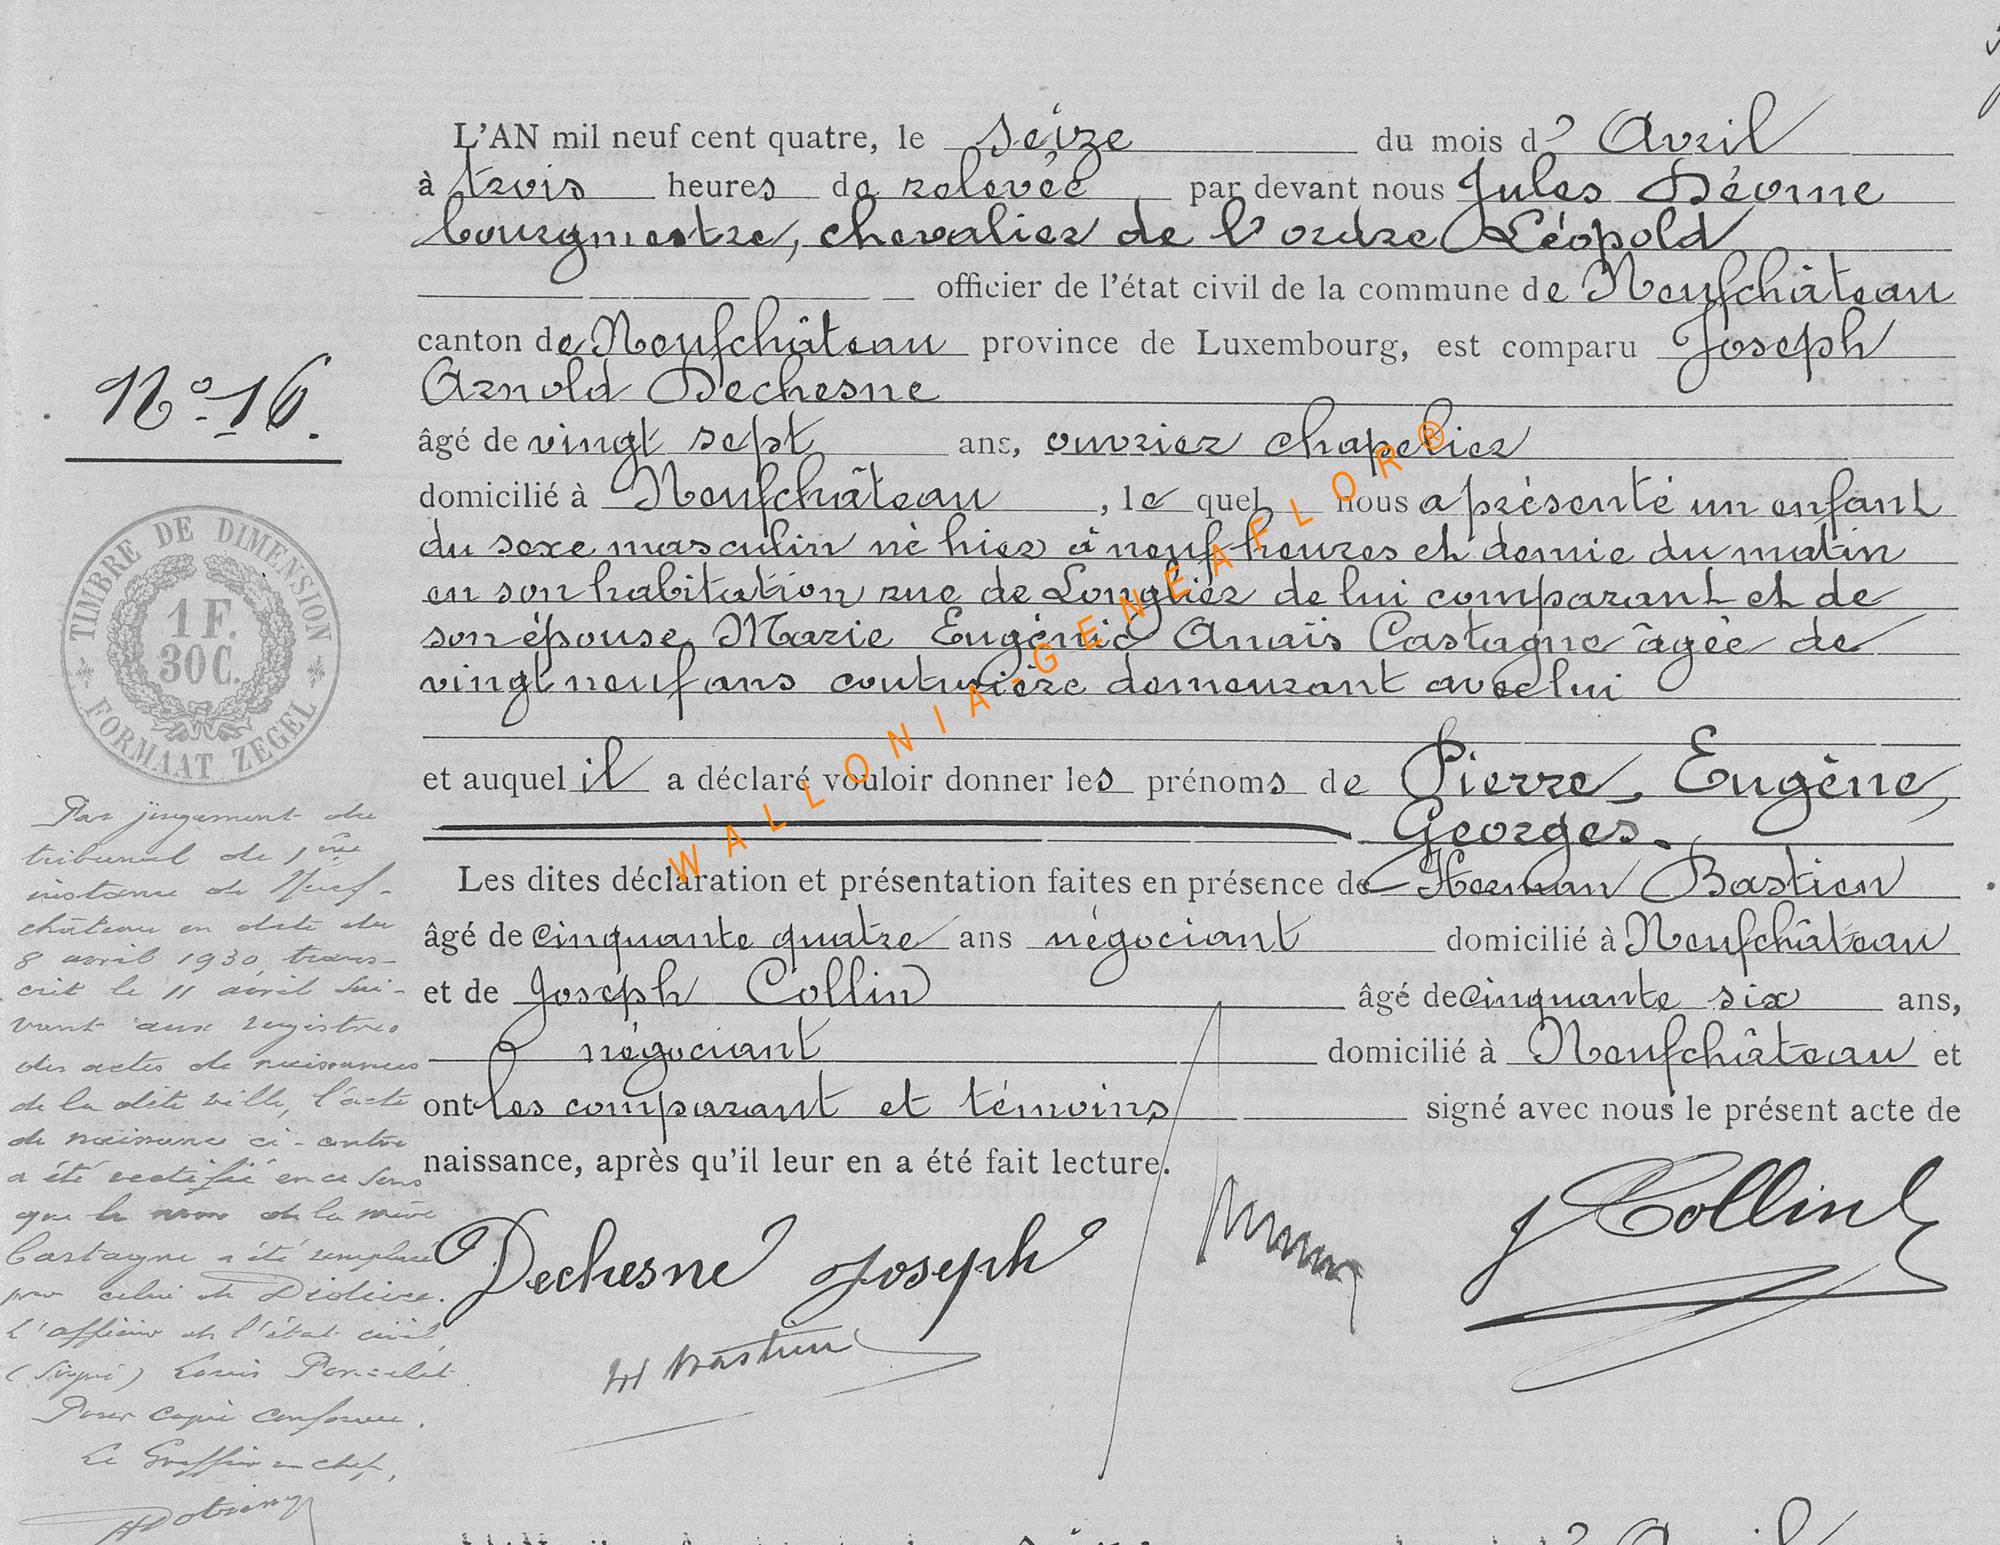 L'AN mil neuf cent quatre, le seize du mois d' Avril
à trois heures de relevée par devant nous Jules
bourgmestre, chevalier de l'ordre Léopold
officier de l'état civil de la commune de Neufchâteau
canton de Neufchâteau province de Luxembourg, est comparu Joseph
Arnold Dechesne
âgé de vingt sept ans, ouvrier chapelier
domicilié à Neufchâteau, le quel nous a présenté un enfant
du sexe masculin né hier à neuf heures et demie du matin
en son habitation rue de Longlier de lui comparant et de
son épouse Marie Eugénie Anaïs Castagne âgée de
vingt neuf ans couturière demeurant avec lui
et auquel il a déclaré vouloir donner les prénoms de Pierre, Eugène,
Georges.
Les dites déclaration et présentation faites en présence de Herman Bastien
âgé de cinquante quatre ans négociant domicilié à Neufchâteau
et de Joseph Collin âgé de cinquante six ans,
négociant domicilié à Neufchâteau et
ont les comparant et témoins signé avec nous le présent acte de
naissance, après qu'il leur en a été fait lecture.
Dechesne Joseph
J Collin
H Bastien
No 16.
TIMBRE DE DIMENSION
1 F.
30 C.
FORMAAT ZEGEL
Par jugement du
tribunal de 1ère
instance de Neuf-
château en date du
8 avril 1930, trans-
crit le 11 avril sui-
vant aux registres
des actes de naissances
de la dite ville, l'acte
de naissance ci-contre
a été rectifié en ce sens
que le nom de la mère
Castagne a été remplacé
par celui de
L'officier de l'état civil,
(signé) Louis Poncelet
Pour copie conforme.
Le Greffier en chef,
WALLONIA-GENEAFLOR®